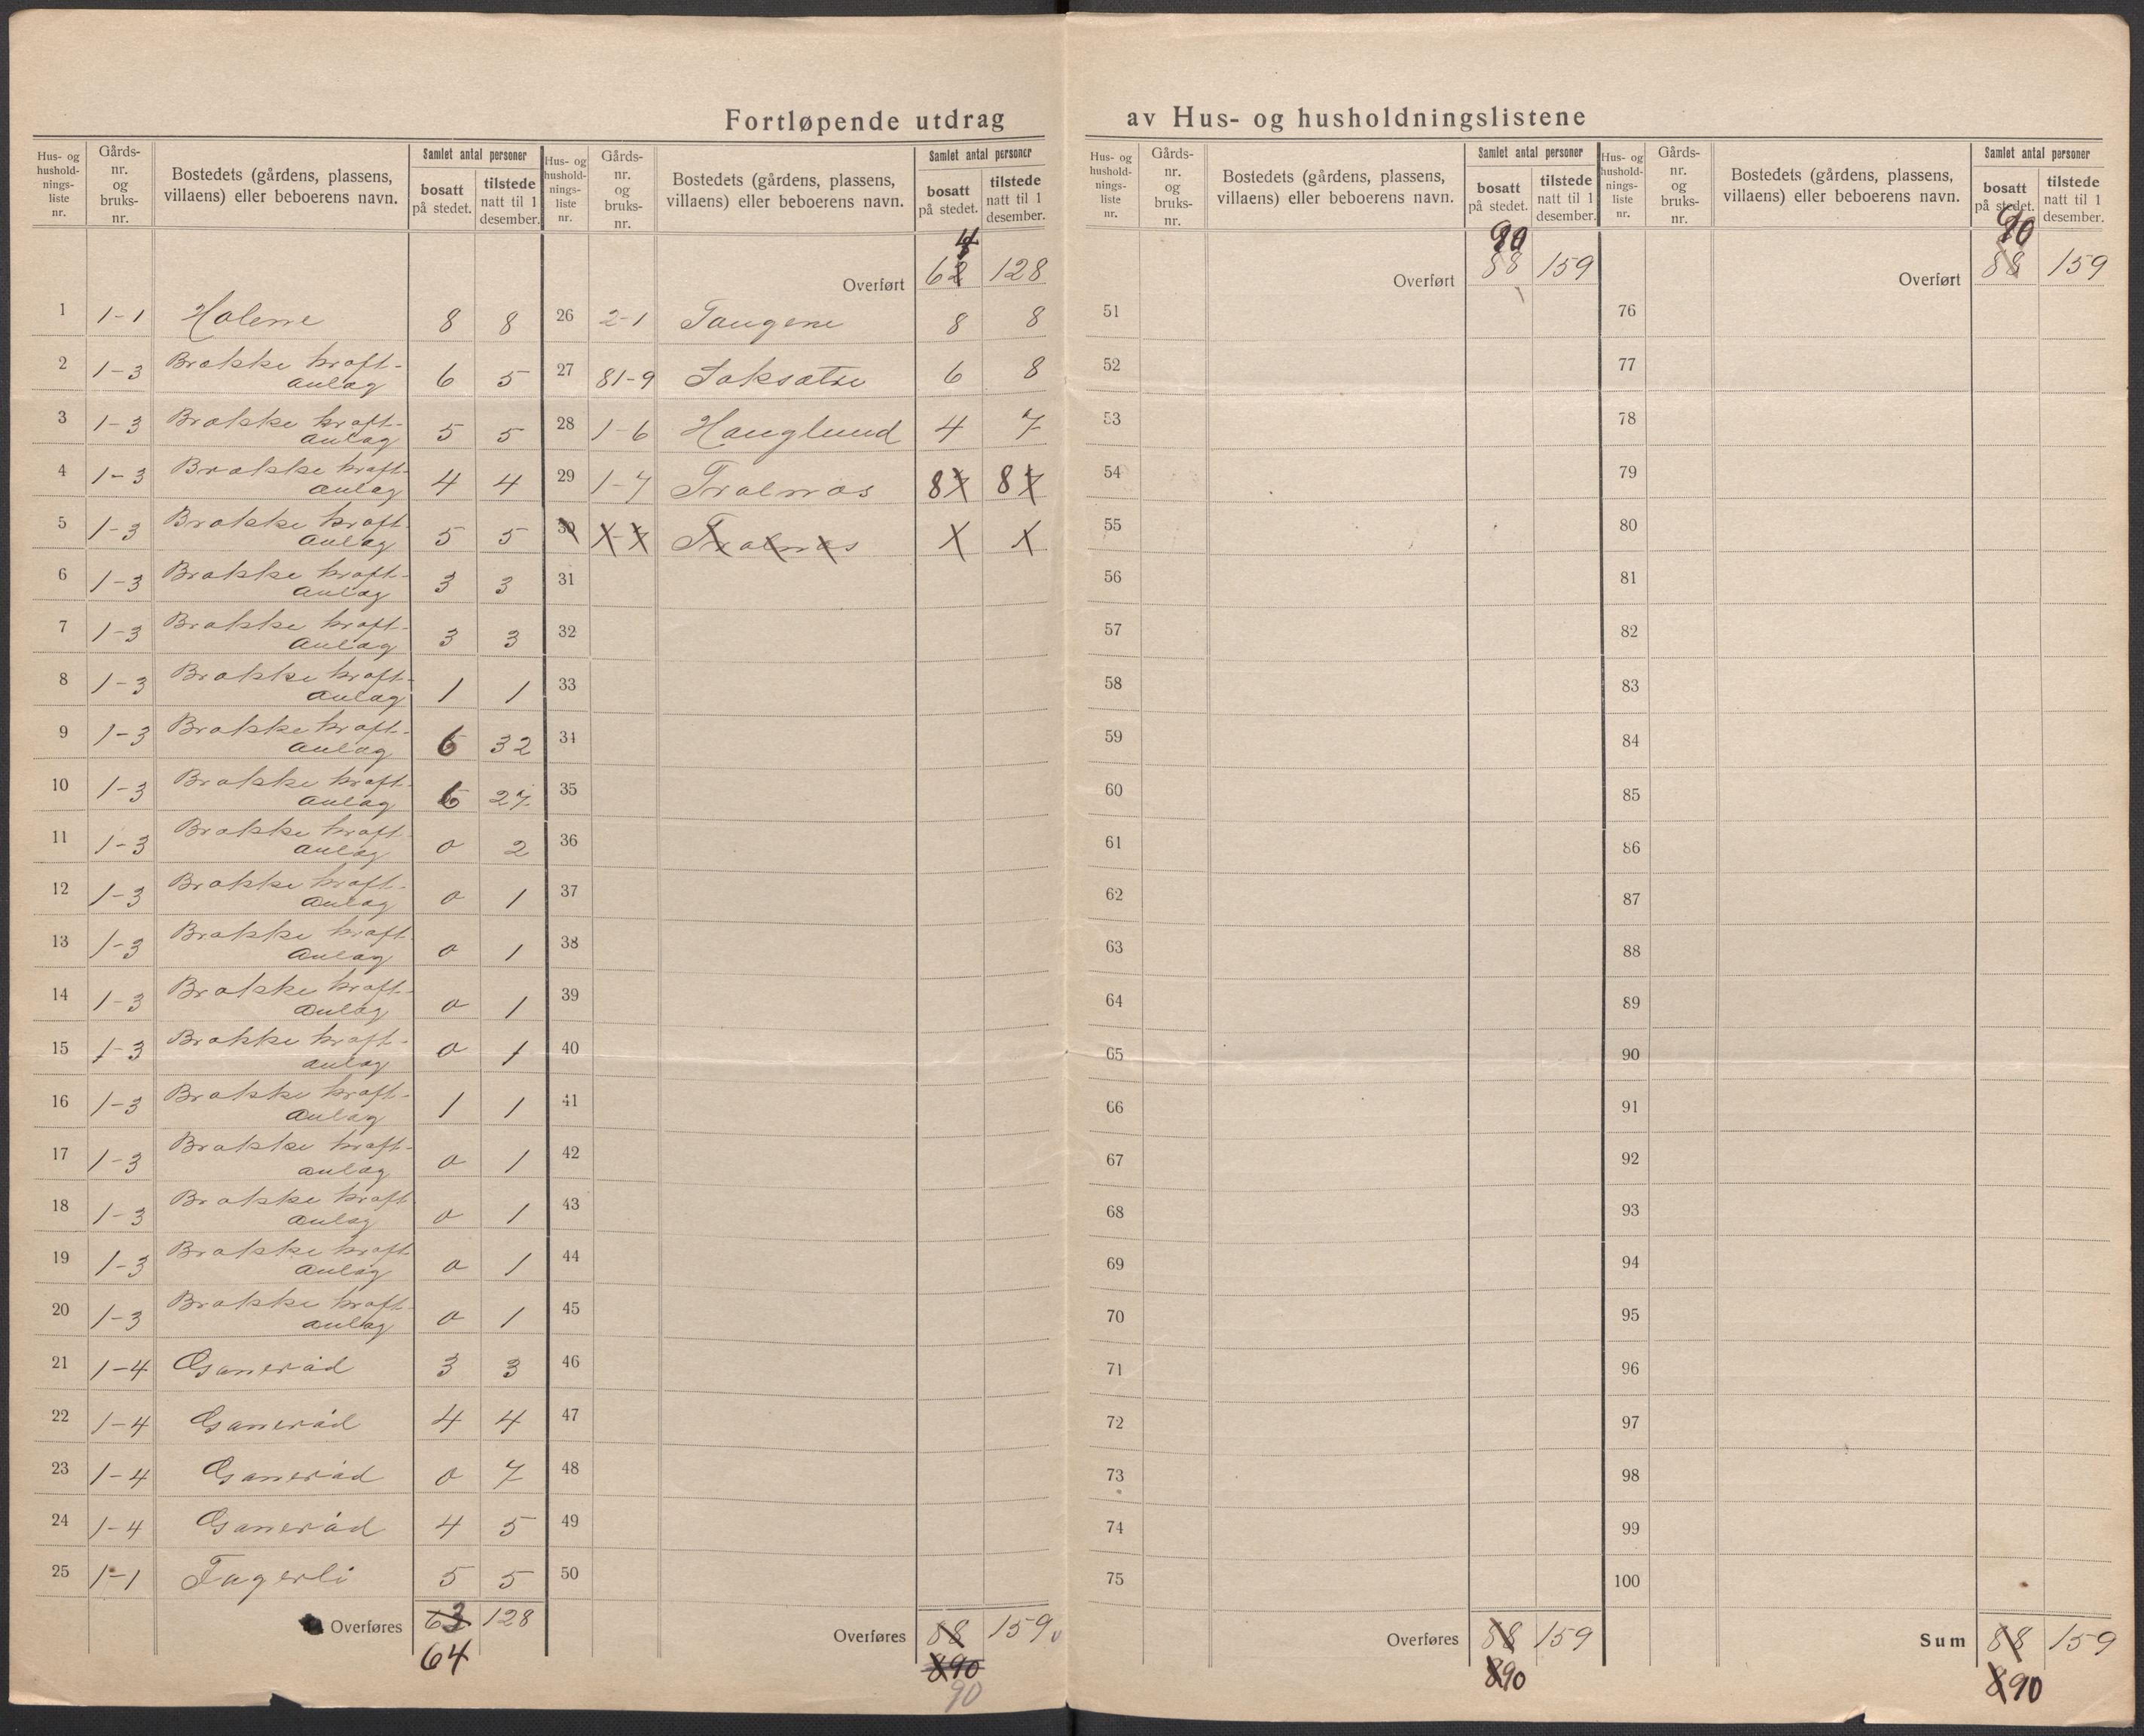 Fortløpende utdrag av Hus- og husholdningslistene
Hus- og husholdnings-liste nr. Gårds-nr. og bruks-nr. Bostedets (gårdens, plassens, villaens) eller beboerens navn. Samlet antal personer bosatt på stedet. tilstede natt til 1 desember.
1 1-1 Holene 8 8
2 1-3 Brokke kraft-
anlæg 6 5
3 1-3 Brokke kraft-
anlæg 5 5
4 1-3 Brokke kraft-
anlæg 4 4
5 1-3 Brokke kraft-
anlæg 5 5
6 1-3 Brokke kraft-
anlæg 3 3
7 1-3 Brokke kraft-
anlæg 3 3
8 1-3 Brokke kraft-
anlæg 1 1
9 1-3 Brokke kraft-
anlæg 6 32
10 1-3 Brokke kraft-
anlæg 6 27
11 1-3 Brokke kraft-
anlæg 0 2
12 1-3 Brokke kraft-
anlæg 0 1
13 1-3 Brokke kraft-
anlæg 0 1
14 1-3 Brokke kraft-
anlæg 0 1
15 1-3 Brokke kraft-
anlæg 0 1
16 1-3 Brokke kraft-
anlæg 1 1
17 1-3 Brokke kraft-
anlæg 0 1
18 1-3 Brokke kraft-
anlæg 0 1
19 1-3 Brokke kraft-
anlæg 0 1
20 1-3 Brokke kraft-
anlæg 0 1
21 1-4 Ganeråd 3 3
22 1-4 Ganeråd 4 4
23 1-4 Ganeråd 0 7
24 1-4 Ganeråd 4 5
25 1-1 Fagerli 5 5
Overføres 63 128
64
Hus- og husholdnings-liste nr. Gårds-nr. og bruks-nr. Bostedets (gårdens, plassens, villaens) eller beboerens navn. Samlet antal personer bosatt på stedet. tilstede natt til 1 desember.
4
Overført 62 128
26 2-1 Tangene 8 8
27 81-9 6 8
28 1-6 Hauglund 4 7
29 1-7 Tralnæs 8 7 8 7
30 Tralnæs
31
32
33
34
35
36
37
38
39
40
41
42
43
44
45
46
47
48
49
50
Overføres 88 159
890
90
Hus- og husholdnings-liste nr. Gårds-nr. og bruks-nr. Bostedets (gårdens, plassens, villaens) eller beboerens navn. Samlet antal personer bosatt på stedet. tilstede natt til 1 desember.
90
Overført 88 159
51
52
53
54
55
56
57
58
59
60
61
62
63
64
65
66
67
68
69
70
71
72
73
74
75
Overføres 88 159
890
Hus- og husholdnings-liste nr. Gårds-nr. og bruks-nr. Bostedets (gårdens, plassens, villaens) eller beboerens navn. Samlet antal personer bosatt på stedet. tilstede natt til 1 desember.
90
Overført 88 159
76
77
78
79
80
81
82
83
84
85
86
87
88
89
90
91
92
93
94
95
96
97
98
99
100
Sum 88 159
890